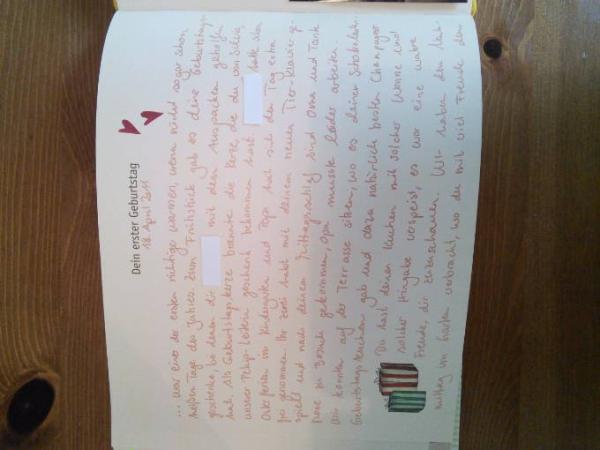 Dein erster Geburtstag
18. April 2011
... war einer der ersten richtige warmen, wenn nicht sogar schon
heißen Tage des Jahres. Zum Frühstück gab es deine Geburtstags-
geschenke, bei denen dir mit dem Auspacken geholfen
hat. Als Geburtstagskerze brannte die Kerze, die du von Silvia,
unserer Pekip-Leiterin geschenkt bekommen hast. hatte schon
Osterferien im Kindergarten und Papa hat sich den Tag extra
frei genommen. Ihr zwei habt mit deinem neuen Tier-Klavier ge-
spielt und nach deinem Mittagsschlaf sind Oma und Tante
zu Besuch gekommen, Opa musste leider arbeiten.
Wir konnten auf der Terrasse sitzen, wo es deinen Schokoladen-
Geburtstagskuchen gab und dazu natürlich besten Champagner
Du hast deinen Kuchen mit solcher Wonne und
solcher Hingabe verspeist, es war eine wahre
Freude, dir zuzuschauen. Wir haben den Nach-
mittag im Garten verbracht, wo du mit viel Freude den